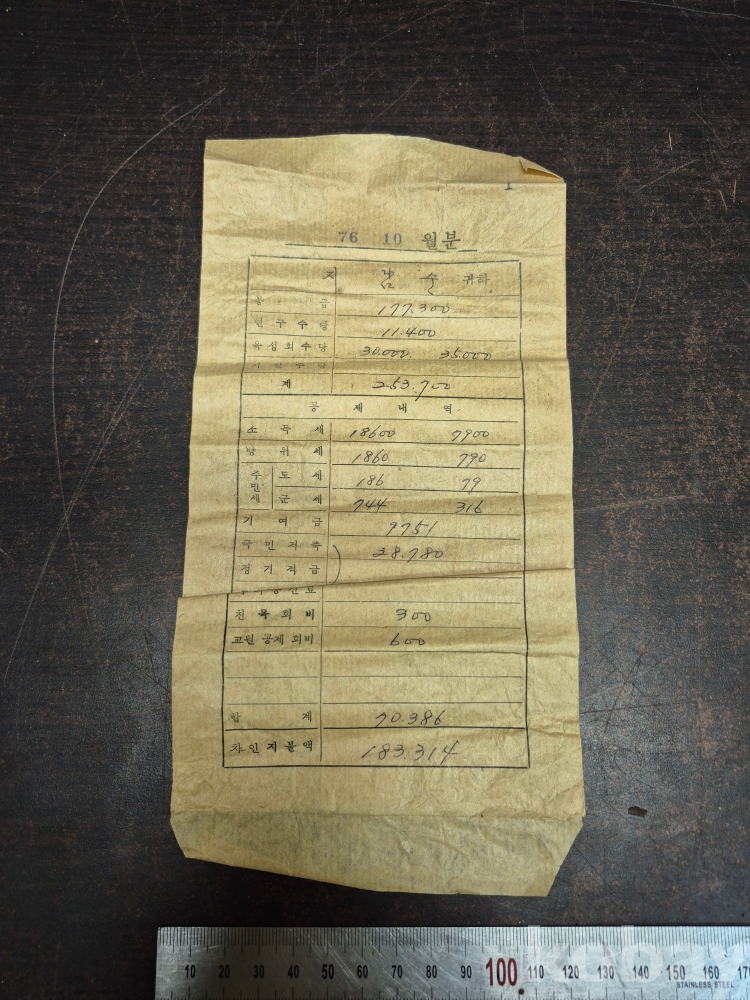 76 10 월분
귀하
급 177.300
11.400
육성회수당 30.000. 35.000
계 253.700
공 제 내 역
소 득 세 18600 7900
방 위 세 1860 790
주민세 도 세 186 79
군 세 744 316
기 여 금 9751
국 민 저 축 28.780
정 기 적 금
친 목 회 비 300
교원 공제 회비 600
합 계 70.386
차 인 지 불 액 183.314
10 20 30 40 50 60 70 80 90 100 110 120 130 140 150 160 170
STAINLESS STEEL